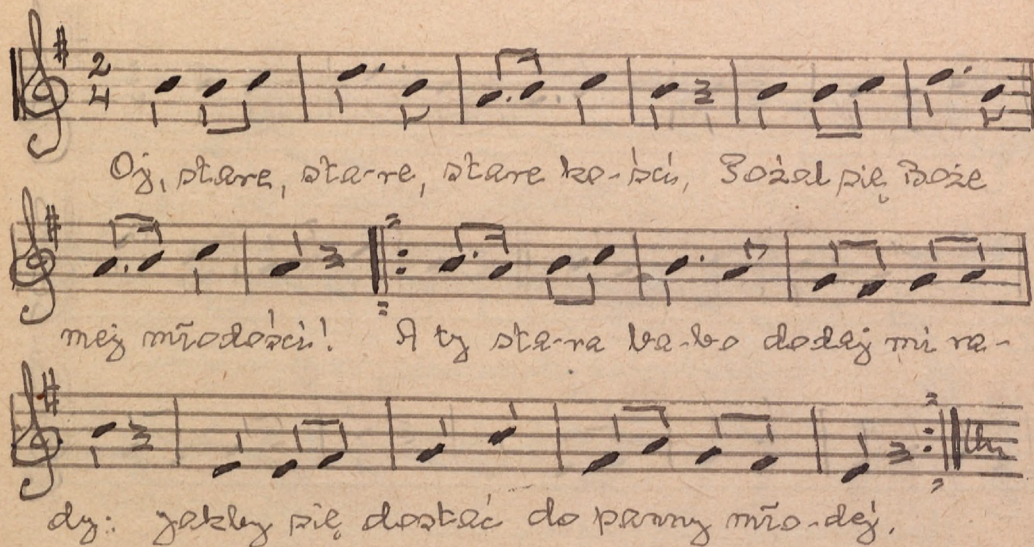 2
4
Oj, stare, sta-re, stare ko-ści, Pożal się Boże
mej młodości! A ty sta-ra ba-bo dodaj mi ra-
dy: jakby się dostać do panny mło-dej.